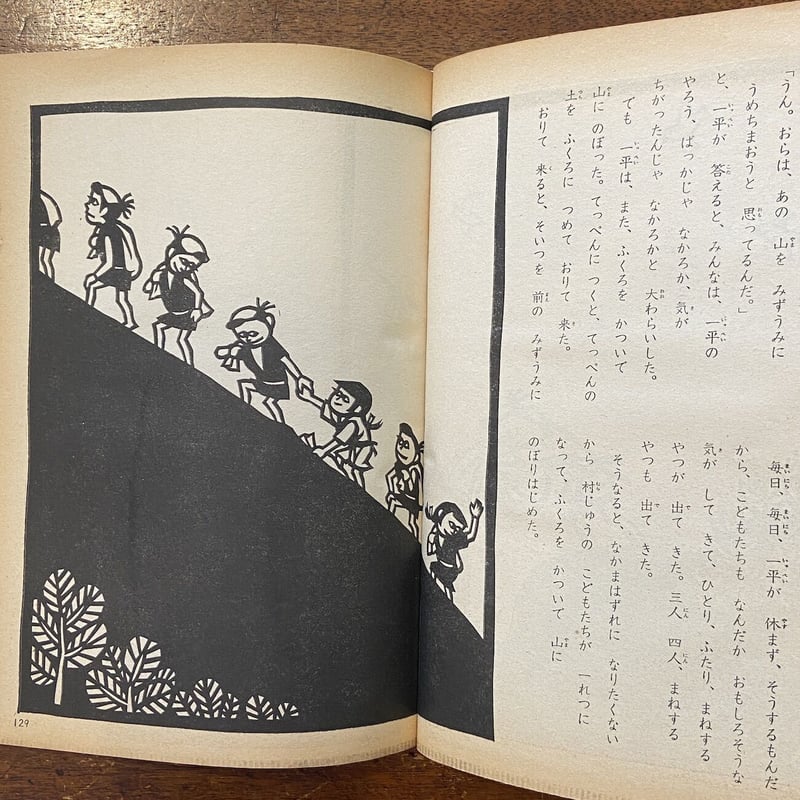 「うん。おらは、あの 山を みずうみに
うめちまおうと 思ってるんだ。」
と、一平が 答えると、みんなは、一平の
やろう、ばっかじゃ なかろか、気が
ちがったんじゃ なかろかと 大わらいした。
でも 一平は、また、ふくろを かついで
山に のぼった。てっぺんに つくと、てっぺんの
土を ふくろに つめて おりて 来た。
おりて 来ると、そいつを 前の みずうみに
毎日、毎日、一平が 休まず、そうするもんだ
から、こどもたちも なんだか おもしろそうな
気が して きて、ひとり、ふたり、まねする
やつが 出て きた。三人 四人、まねする
やつも 出て きた。
そうなると、なかまはずれに なりたくない
から 村じゅうの こどもたちが 一れつに
なって、ふくろを かついで 山に
のぼりはじめた。
129